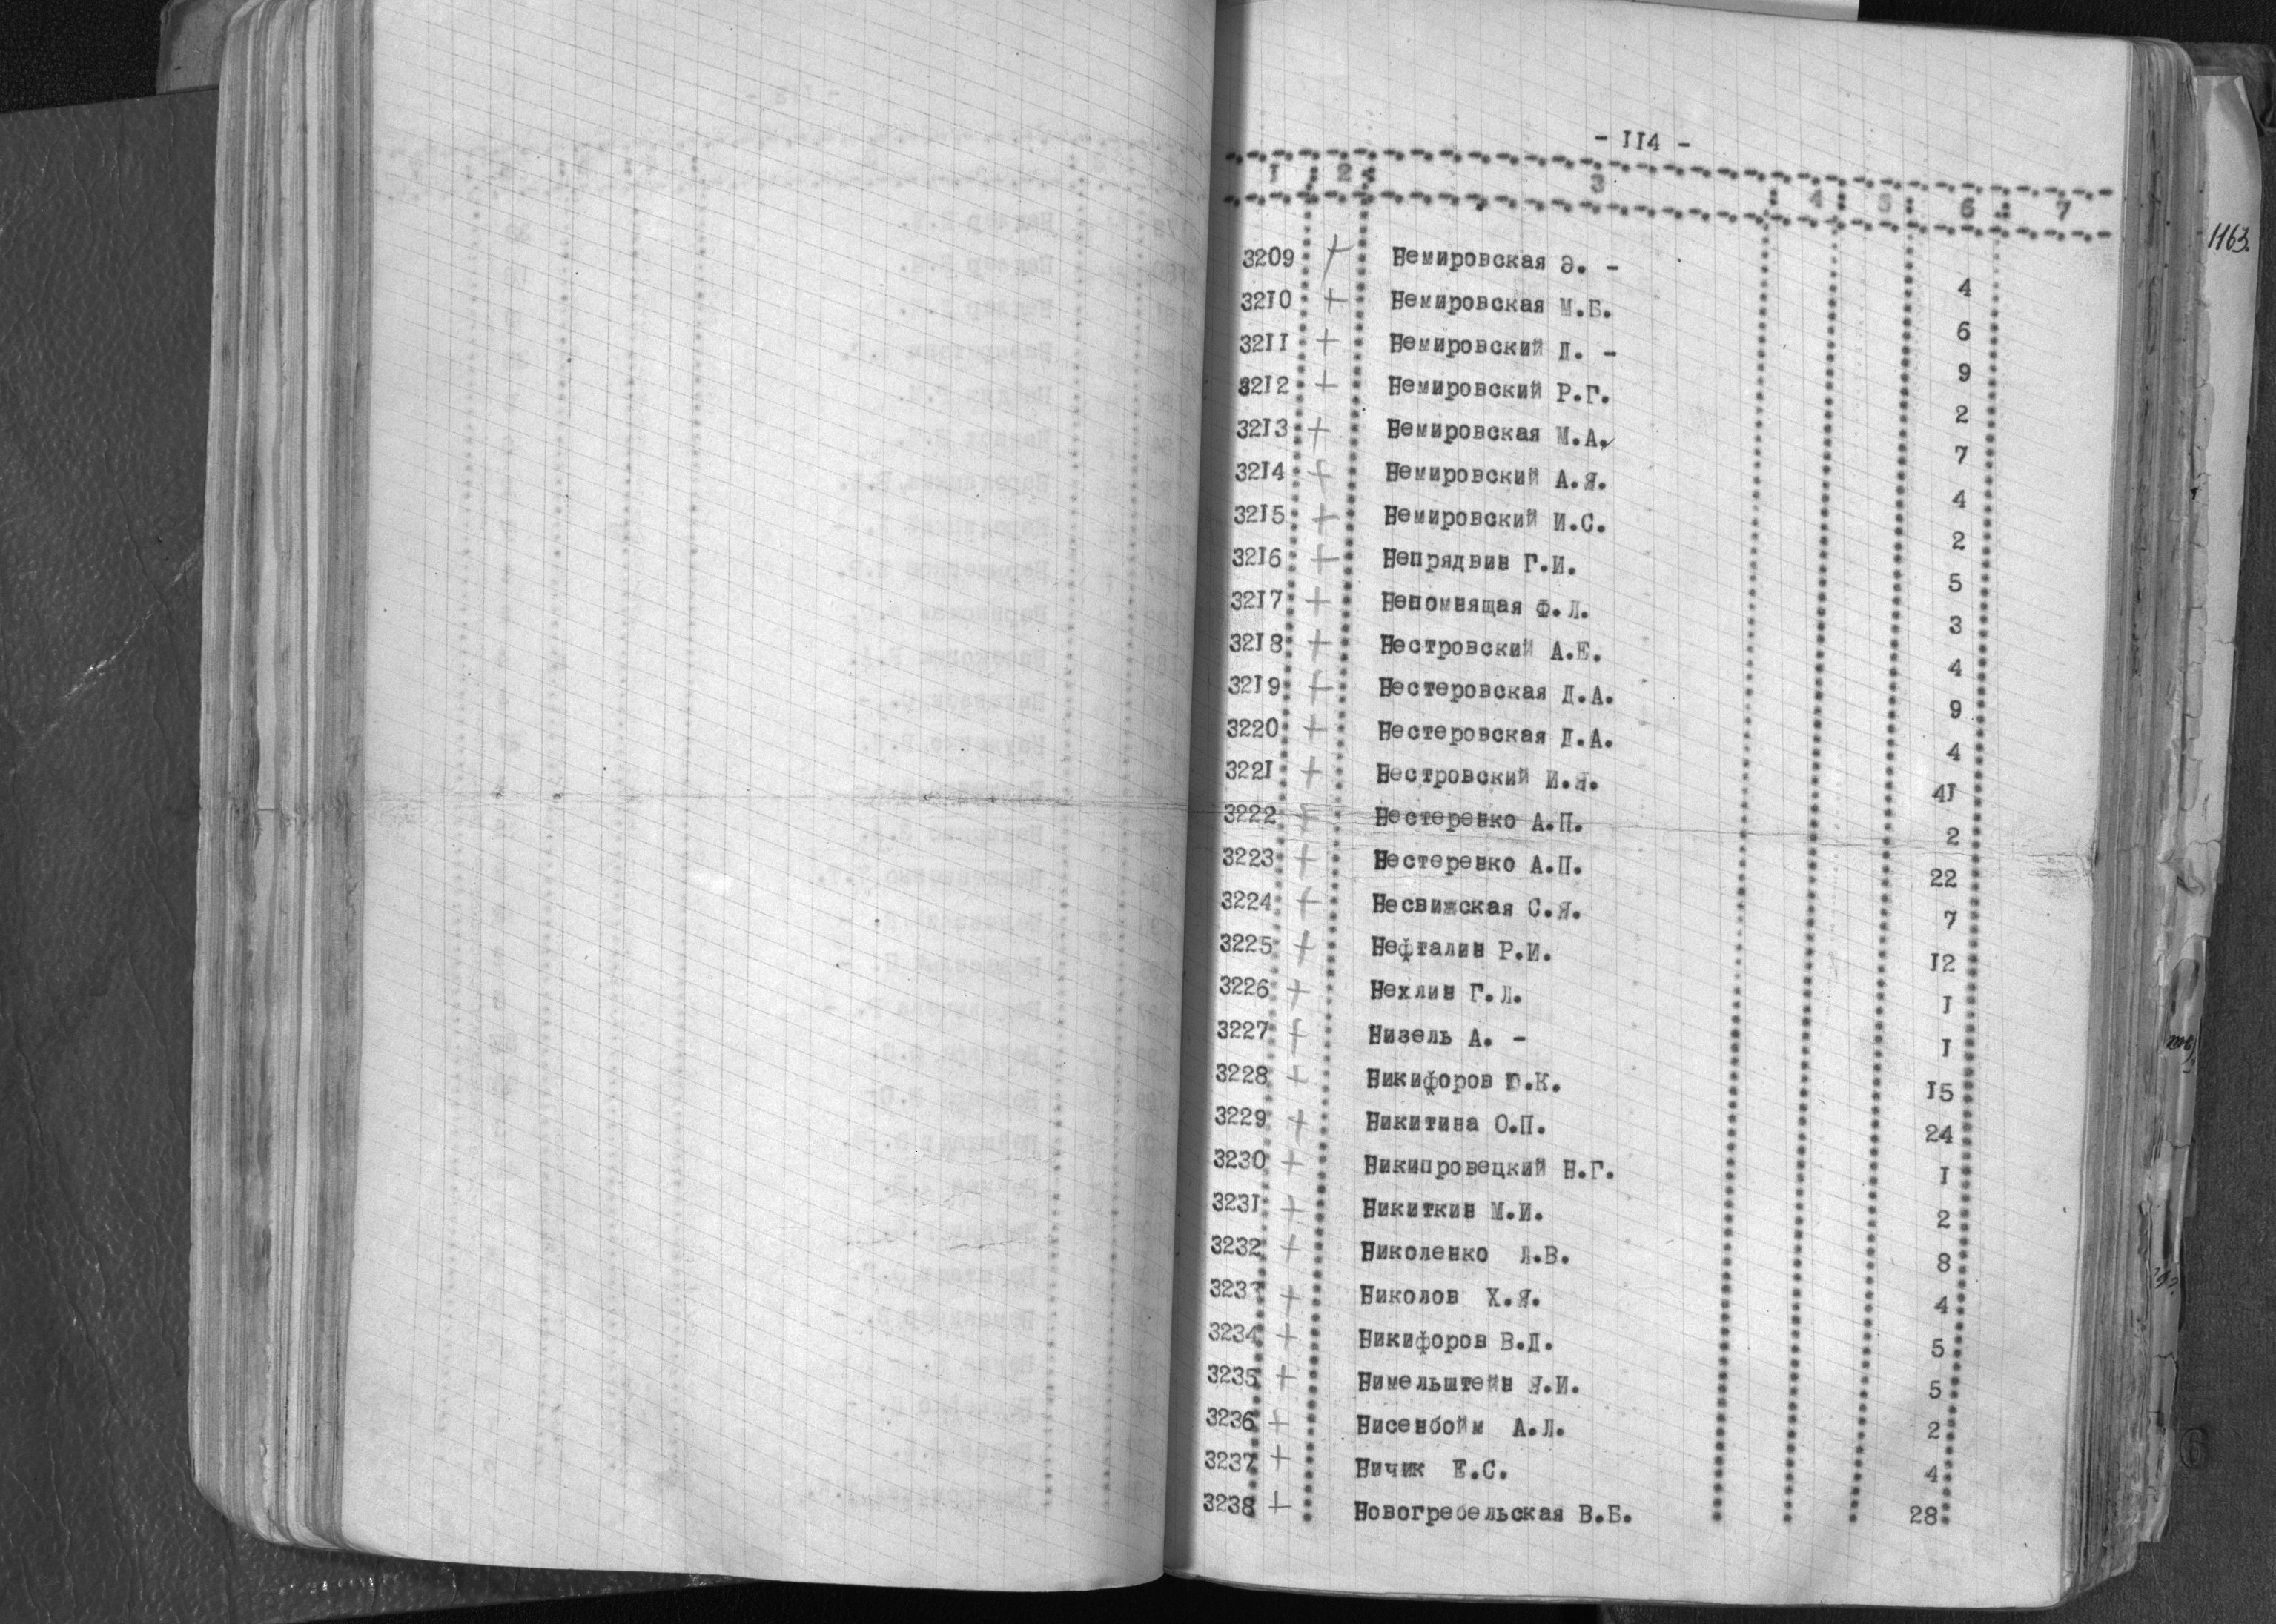 - II4 -
I : 2 : 3 : 4 : 5 : 6 : 7
3209 + Немировская Э. - 4
32I0 + Немировская М.Б. 6
32II + Немировский Д. - 9
32I2 + Немировский Р.Г. 2
32I3 + Немировская М.А. 7
32I4 + Немировский А.Я. 4
32I5 + Немировский И.С. 2
32I6 + Непрядвин Г.И. 5
32I7 + Непомнящая Ф.Л. 3
32I8 + Нестровский А.Е. 4
32I9 + Нестеровская Д.А. 9
3220 + Нестеровская Д.А. 4
322I + Нестровский И.Я. 4I
3222 + Нестеренко А.П. 2
3223 + Нестеренко А.П. 22
3224 + Несвижская С.Я. 7
3225 + Нефталин Р.И. I2
3226 + Нехлин Г.Л. I
3227 + Низель А. - I
3228 + Никифоров Ю.К. I5
3229 + Никитина О.П. 24
3230 + Никипровецкий Н.Г. I
323I + Никиткин М.И. 2
3232 + Николенко Л.В. 8
3233 + Николов Х.Я. 4
3234 + Никифоров В.Д. 5
3235 + Нимельштейн Я.И. 5
3236 + Нисенбойм А.Л. 2
3237 + Ничик Е.С. 4
3238 + Новогребельская В.Б. 28
1163.